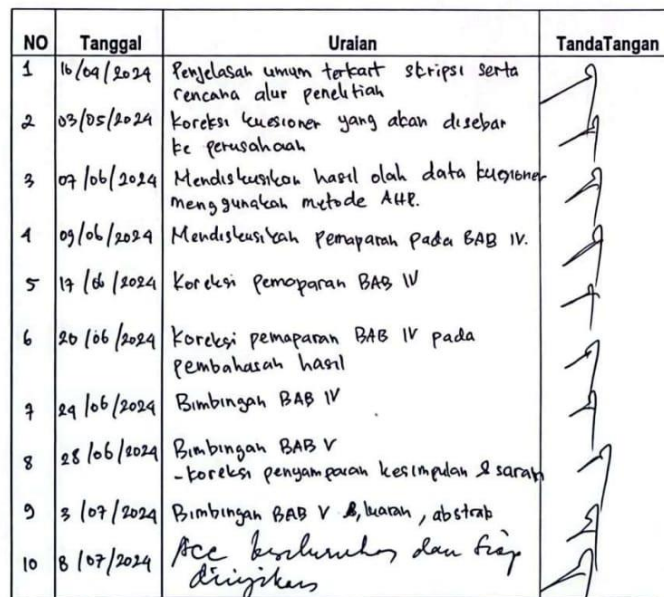 NO Tanggal Uraian TandaTangan
1 16/04/2024 Penjelasan umum terkait skripsi serta
rencana alur penelitian
2 03/05/2024 Koreksi kuesioner yang akan disebar
ke perusahaan
3 07/06/2024 Mendiskusikan hasil olah data kuesioner
menggunakan metode AHP.
4 09/06/2024 Mendiskusikan Pemaparan pada BAB IV.
5 17/06/2024 Koreksi pemaparan BAB IV
6 20/06/2024 Koreksi pemaparan BAB IV pada
pembahasan hasil
7 24/06/2024 Bimbingan BAB IV
8 28/06/2024 Bimbingan BAB V
- Koreksi penyamparan kesimpulan & saran
9 3/07/2024 Bimbingan BAB V , luaran, abstrak
10 8/07/2024 Acc keseluruhan dan siap
diujikan